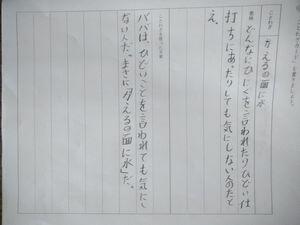 ことわざ
かえるの面に水
意味
どんなにひにくを言われたりひどい仕
打ちにあったりしても気にしない人のたと
え。
ことわざを使った文章
パパは、ひどいことを言われても気にし
ない人だ。まさに「かえるの面に水」だ。